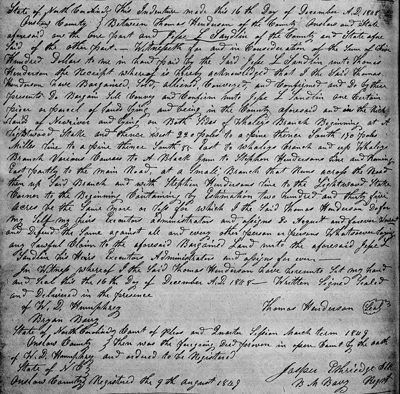 State of North Carolina This Indenture made this 16th Day of December A.D. 1848
Onslow County } Between Thomas Henderson of the County Onslow and State
aforesaid one the one part and Jesse L Sandlin of the County and State afore
said of the other part. Witnesseth for and in Consideration of the Sum of
Hundred Dollars to me in hand paid by the Said Jesse L Sandlin unto Thomas
Henderson the Receipt whereof is hereby acknowledged that I the Said Thomas
Henderson have Bargained, Sold, aliened, Conveyed, and Confirmed and Do by these
presents, Bargain Sell Convey and Confirm unto Jesse L Sandlin one Certain
piece or parcel of Land lying and being in the County aforesaid and in the
and lying on Both Sides of Whaleys Branch Beginning at a
Lightwood Stake and thence west 220 poles to a pine thence South 150 poles
line to a pine thence South East to Whaleys Branch and up Whaleys
Branch Various Courses to A Black Gum to Stephen Hendersons line and Runing
East partly to the Main Road, at a Small Branch that Runs across the Road
then up Said Branch and with Stephen Hendersons line to the Lightwood Stake
Corner to the Beginning Containing by Estimation two hundred and thirty five
Acres be the Same more or less for which I the Said Thomas Henderson
My Self my heirs Executors administrators and assigns and forever Warrant
and Defend the Same against all and every other person or persons Whatsoever laying
any Lawful Claim to the aforesaid Bargained Land unto the aforesaid Jesse L
Sandlin his Heirs Executors Administrators and assigns for ever
In Witness whereof I the Said Thomas Henderson have hereunto Set my hand
and Seal this the 16th Day of December A.D. 1848 Written Signed Sealed
and Delivered in the presence
of W. D. Humphrey Thomas Henderson Seal
Bryan
State of North Carolina Court of Pleas and Quarter Session March Term 1849
Onslow County } Then was the foregoing Deed proven in open Court by the oath
of W. D. Humphrey and ordered to be Registered
State of N C Jasper Etheridge Clk
Onslow County } Registered the 9th august 1849